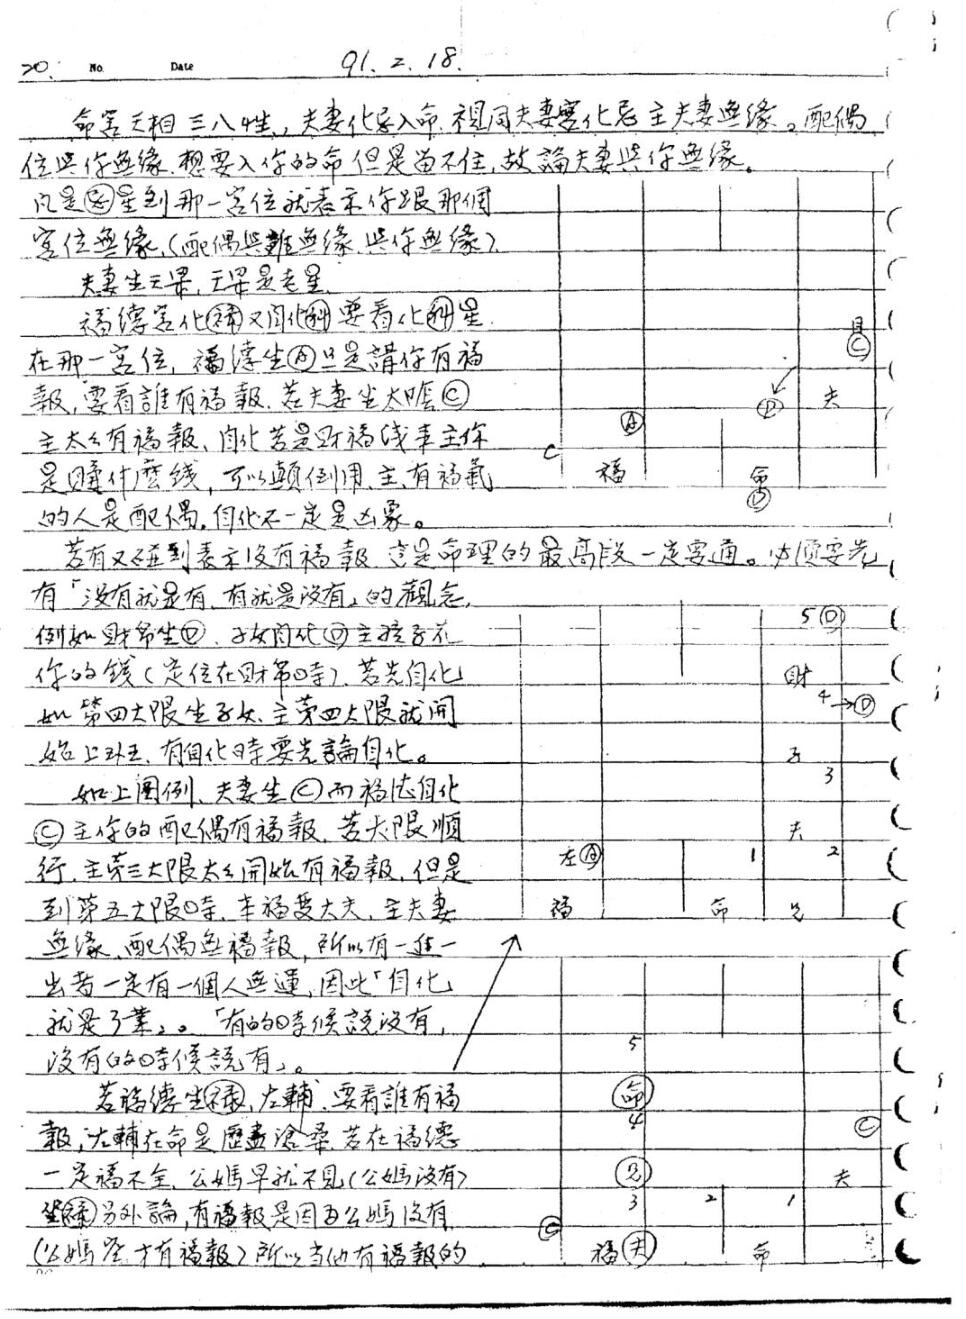 20. No. Date 91. 2. 18.
命宮天相三八性,夫妻化忌入命,視同夫妻宮化忌主夫妻無緣。配偶
位與你無緣,想要入你的命但是留不住,故論夫妻與你無緣。
凡是忌星到那一宮位就表示你跟那個
宮位無緣,(配偶與難無緣,與你無緣)
夫妻坐天梁,天梁是老星,
福德宮化祿又自化科要看化科星
在那一宮位,福德坐A只是講你有福
報,要看誰有福報,若夫妻坐太陰C
主太太有福報,自化若是財福线來主你
是賺什麼錢,可以顛倒用,主,有福氣
的人是配偶,自化不一定是凶象。
若有又碰到表示沒有福報,這是命理的最高段一定要通。必須要先
有「沒有就是有,有就是沒有」的觀念,
例如財帛坐D,子女自化D主孩子花
你的錢(定位在財帛時),若先自化
如第四大限坐子女,主第四大限就開
始上班,有自化時要先論自化。
如上圖例,夫妻坐C而福德自化
C主你的配偶有福報,若大限順
行,主第三大限太太開始有福報,但是
到第五大限時,幸福變大夫,主夫妻
無緣,配偶無福報,所以有一進一
出者一定有一個人無運,因此「自化」
就是了業」。「有的時候說沒有,
沒有的時候說有」。
若福德坐祿,左輔,要看誰有福
報,左輔在命是歷盡滄桑,若在福德
一定福不全,公媽早就不見(公媽沒有)
坐祿另外論,有福報是因為公媽沒有
(公媽空,才有福報)所以當他有福報的
月
C
D
夫
A
C
福
命
D
5 D
財
4 → D
子
3
夫
左A
1
2
福
命
兄
5
命
4
C
兄
夫
3
2
1
C
福 夫
命